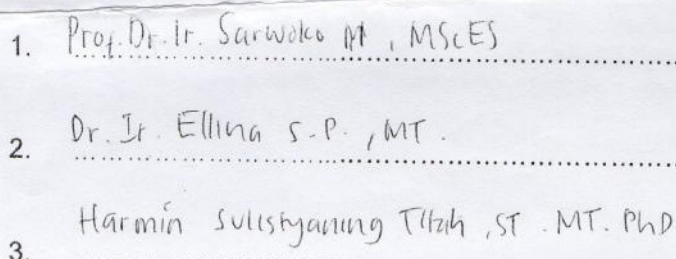 1. Prof. Dr. Ir. Sarwoko M, MScES
2. Dr. Ir. Ellina S.P., MT.
3. Harmin Sulistyaning Titah, ST. MT. PhD